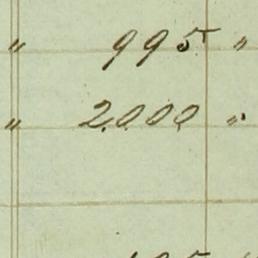 " 995 "
" 2000 "